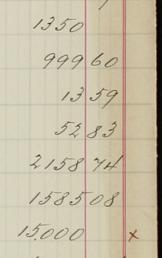 1350
999 60
13 59
52 83
2158 74
1585 08
15,000 x